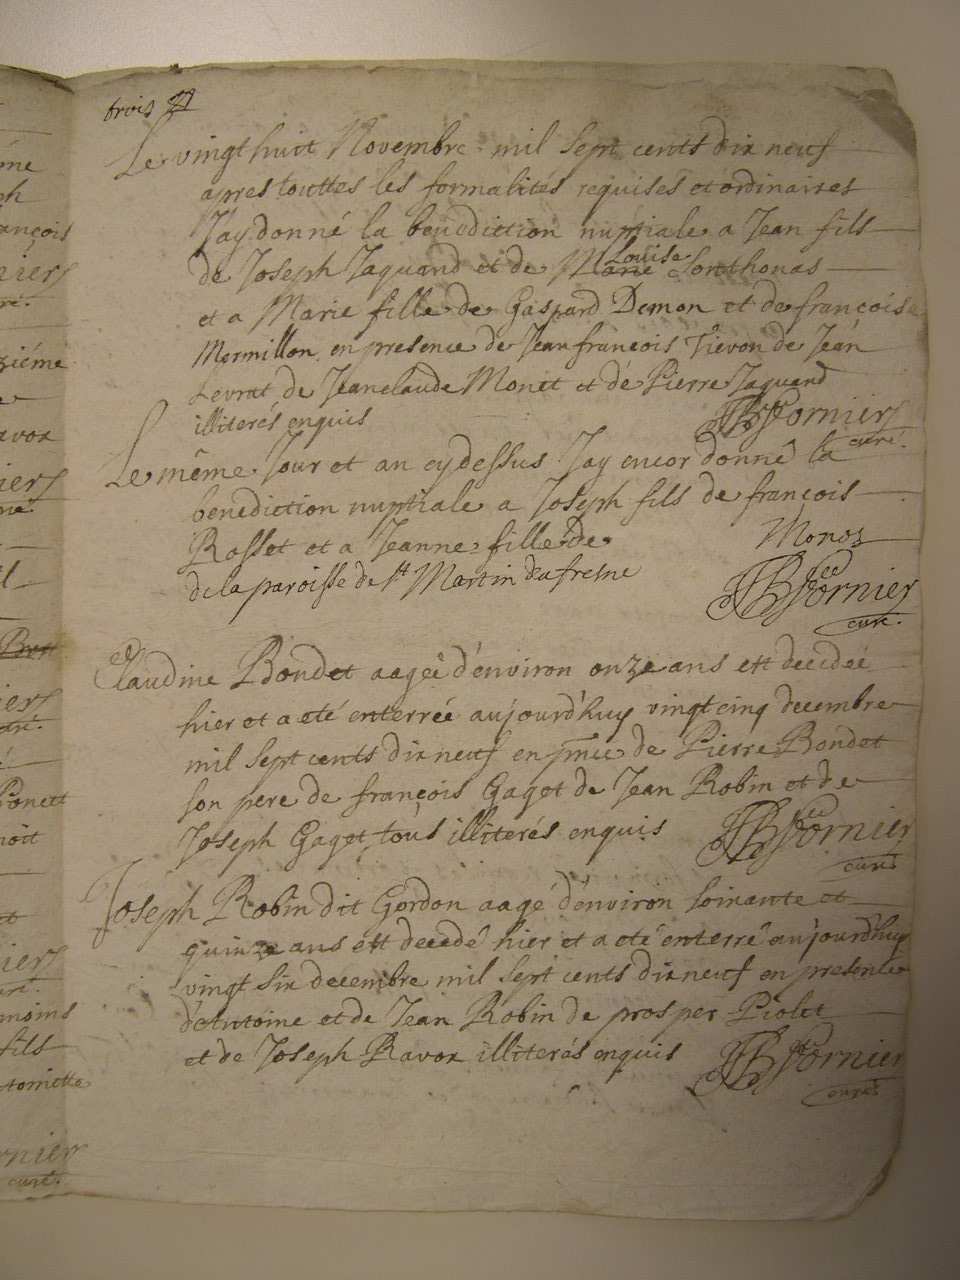 trois
Le vingt huit Novembre mil sept cents dix neuf
apres touttes les formalités requises et ordinaires
Jay donné la benediction nuptiale a Jean fils
Louise
de Joseph Jaquand et de Marie Sonthonas
et a Marie fille de Gaspard Demon et de françoise
Mermillon en presence de Jean françois Tievon de Jean
Levrat de Jeanclaude Monet et de Pierre Jaquand
illiterés enquis Fornier
curé.
Le même Jour et an cy dessus Jay encor donné la
benediction nuptiale a Joseph fils de françois
Rosset et a Jeanne fille de Monoz
de la paroisse de St Martin du fresne
Fornier
curé.
Claudine Bondet aageé d'environ onze ans est decedeé
hier et a eté enterreé aujourd'huy vingt cinq decembre
mil sept cents dix neuf en pnce de Pierre Bondet
son pere de françois Gaget de Jean Robin et de
Joseph Gaget tous illiterés enquis Fornier
curé
Joseph Robin dit Gordon aagé d'environ soixante et
quinze ans est decedé hier et a eté enterré aujourd'huy
vingt six decembre mil sept cents dix neuf en presence
d'Antoine et de Jean Robin de prosper Piolet
et de Joseph Ravox illiterés enquis Fornier
curé
ançois
ziéme
avox
Ponett
noit
moins
fils
toinette
rnier
curé.